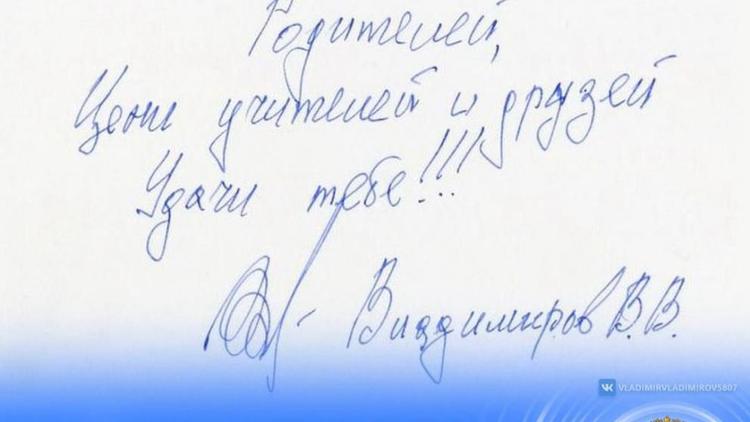 Родителей,
Цени учителей и друзей
Удачи тебе!!!
- Владимиров В.В.
VLADIMIRVLADIMIROV5807